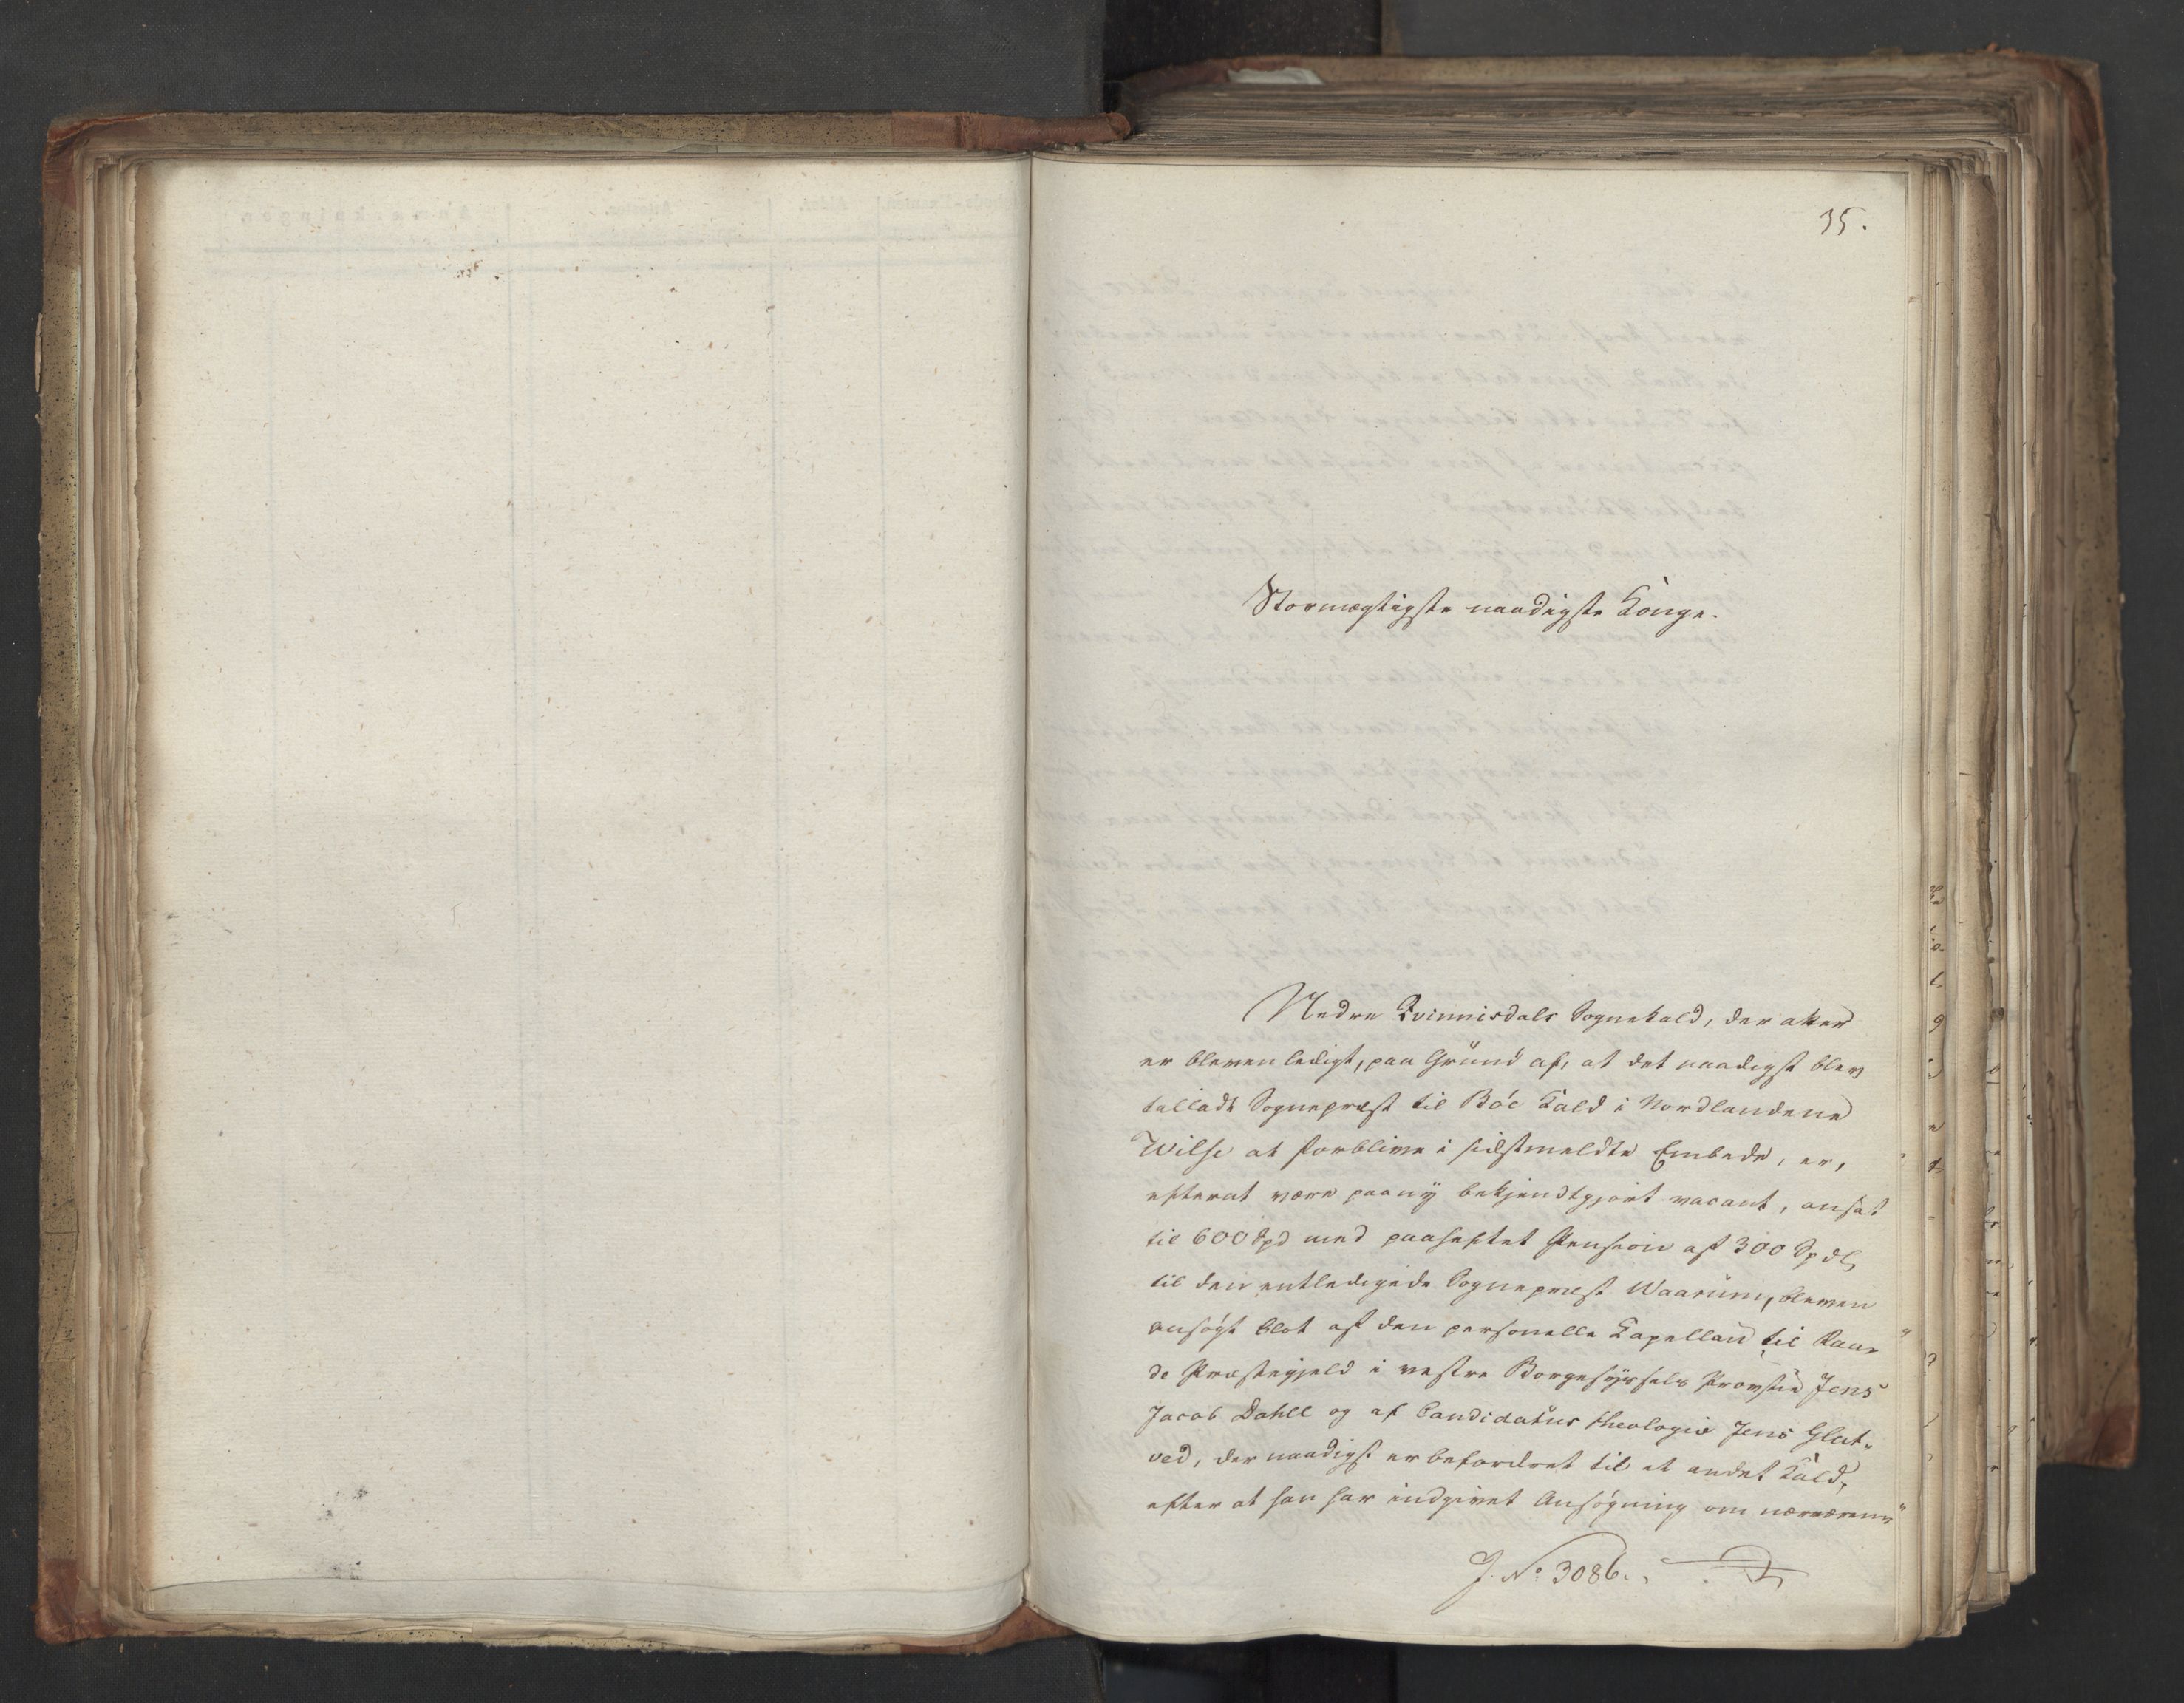 35.
Stormægtigste naadigste Konge.
Nedre Qvinnisdals Sognekald, der atter
er bleven ledigt, paa Grund af, at det naadigst blev
tilladt Sognepræst til Böe Kald i Nordlandene
Wilse at forblive i sidstmeldte Embede, er,
efterat være paany bekjendtgjort vacant, ansat
til 600 Spd med paaheftet Pension af 300 Spdlr
til den entledigede Sognepræst Waarum, bleven
ansögt blot af den personelle Kapellan til Raa-
de Præstegjeld i vestre Borgesyssels Provstie Jens
Jacob Dahll og af Candidatus theologiæ Jens Glat-
ved, der naadigst er befordret til et andet Kald,
efter at han har indgivet Ansögning om nærværen-
J. No 3086.